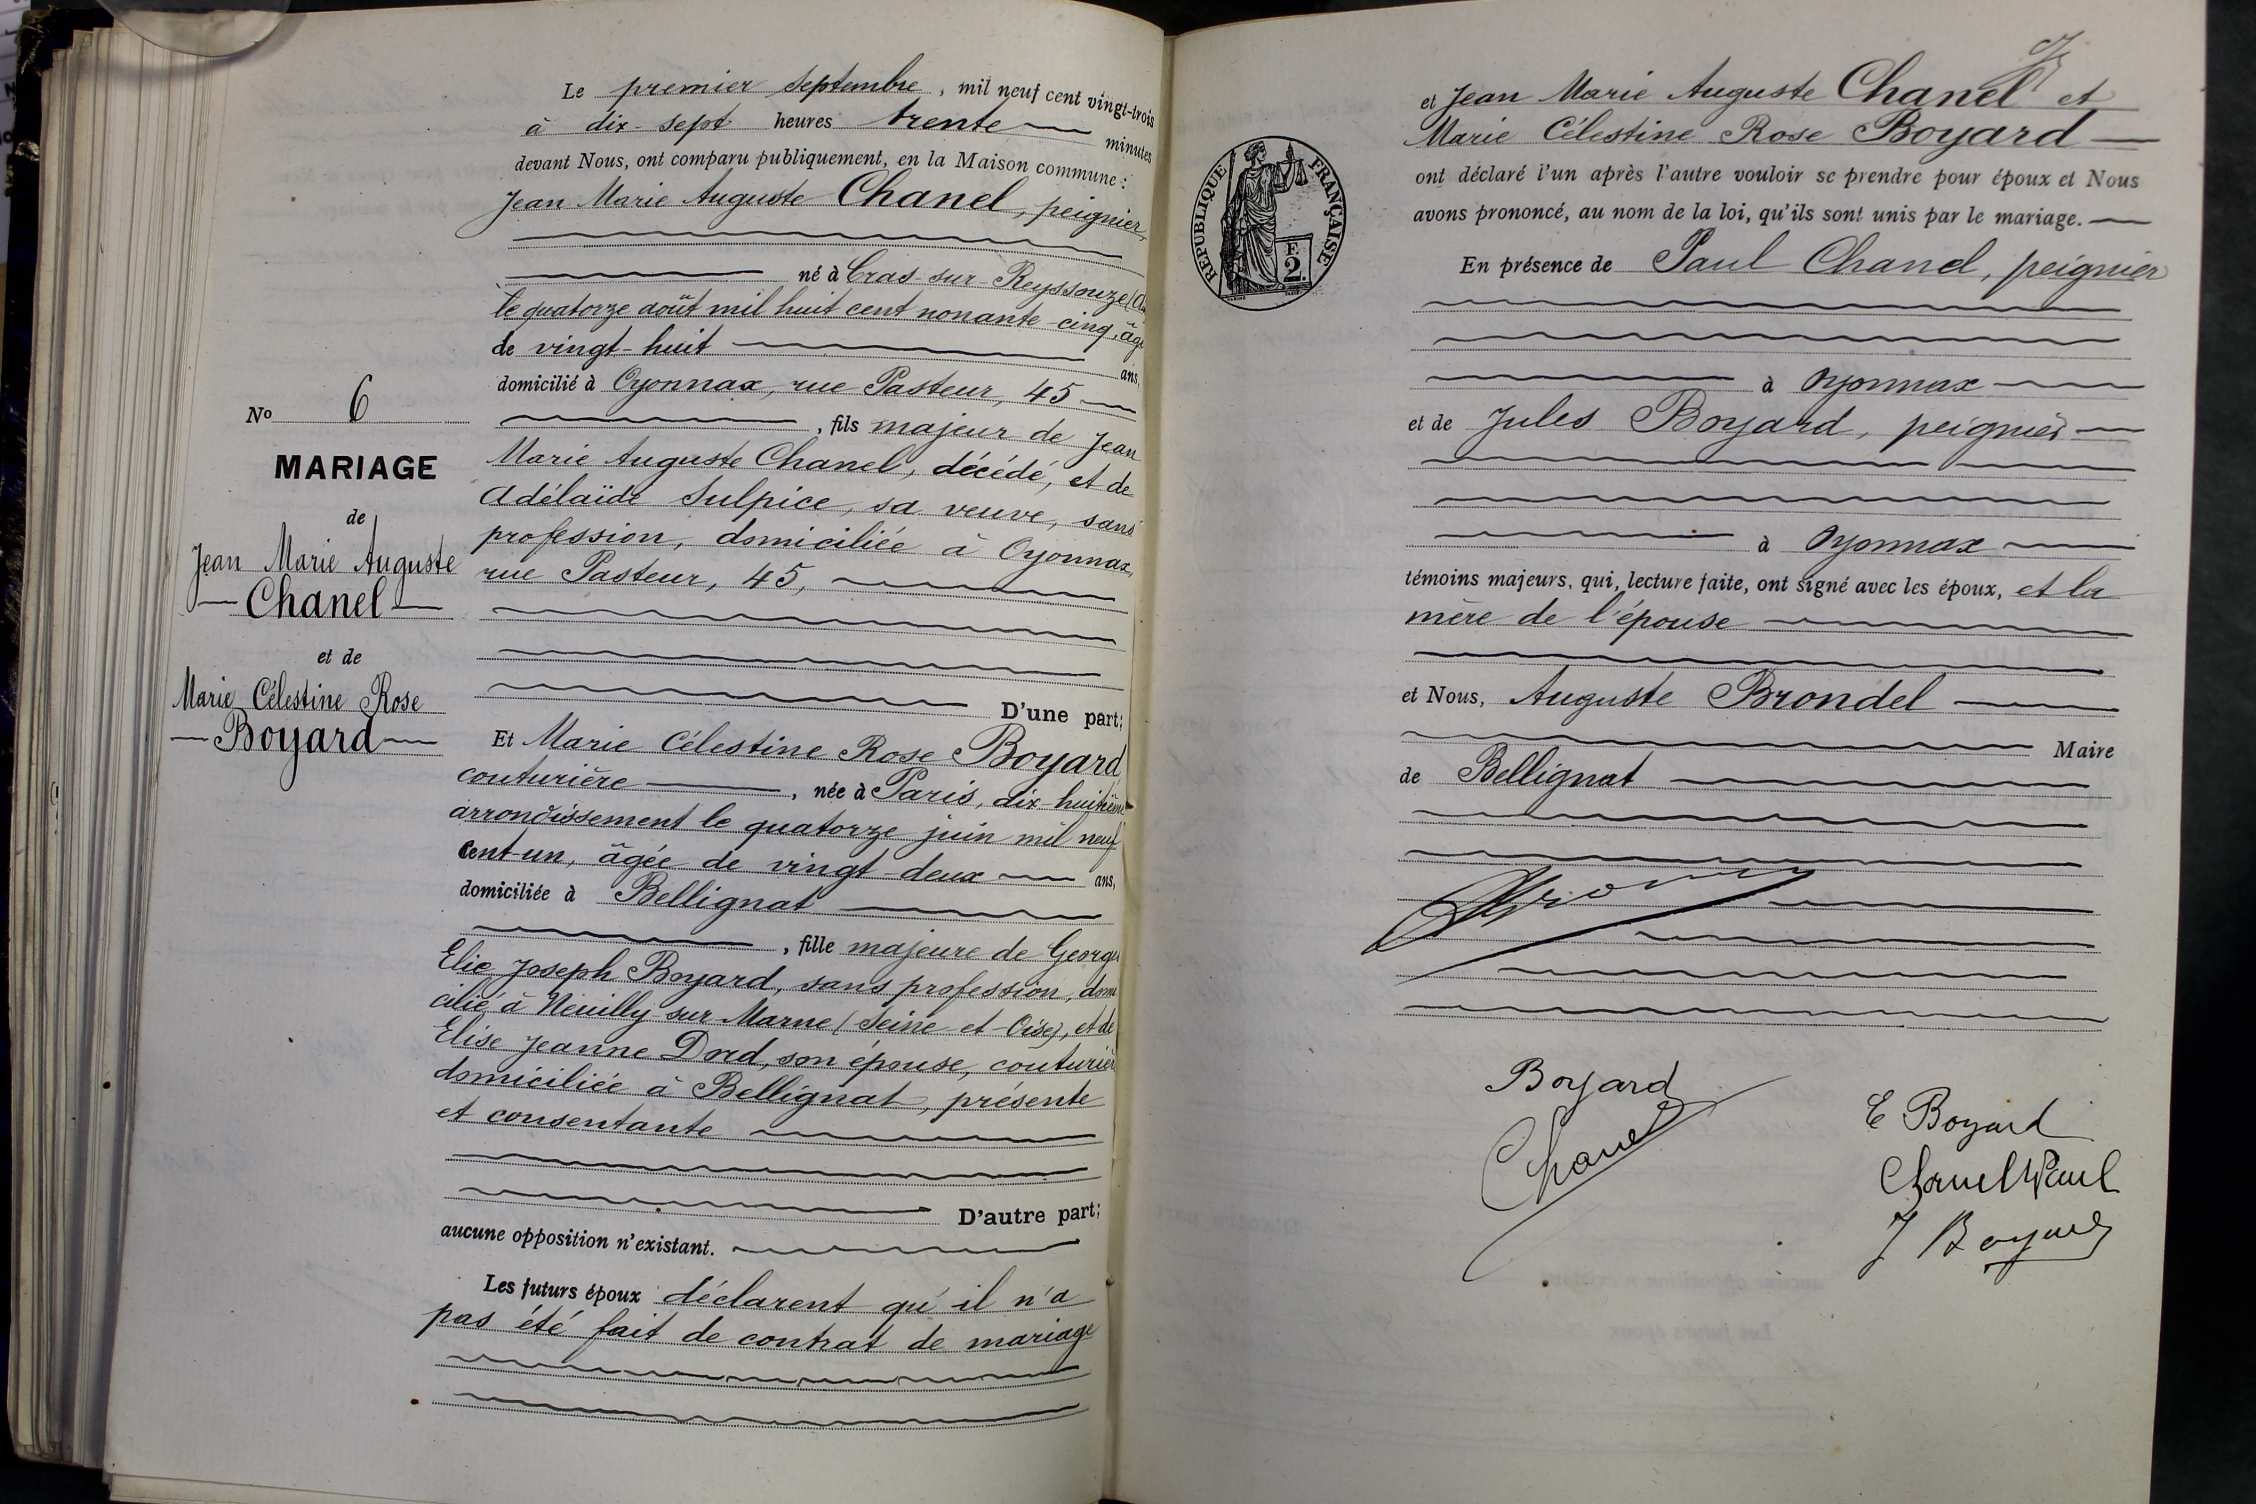 Le premier septembre, mil neuf cent vingt-trois
à dix-sept heures trente minutes
devant Nous, ont comparu publiquement, en la Maison commune :
Jean Marie Auguste Chanel, peignier,
né à Cras-sur-Reyssouze (A
le quatorze août mil huit cent nonante-cinq, âgé
de vingt-huit ans,
domicilié à Oyonnax, rue Pasteur, 45
, fils majeur de Jean
Marie Auguste Chanel, décédé, et de
Adélaïde Sulpice, sa veuve, sans
profession, domiciliée à Oyonnax,
rue Pasteur, 45,
D'une part;
No 6
MARIAGE
de
Jean Marie Auguste
Chanel
et de
Marie Célestine Rose
Boyard
Et Marie Célestine Rose Boyard
couturière, née à Paris, dix-huitième
arrondissement le quatorze juin mil neuf
cent-un, âgée de vingt-deux ans,
domiciliée à Bellignat
, fille majeure de Georges
Elie Joseph Boyard, sans profession, domi
cilié à Neuilly-sur-Marne (Seine-et-Oise), et de
Elise Jeanne Dord, son épouse, couturière
domiciliée à Bellignat, présente
et consentante
D'autre part;
aucune opposition n'existant.
Les futurs époux déclarent qu'il n'a
pas été fait de contrat de mariage
et Jean Marie Auguste Chanel et
Marie Célestine Rose Boyard
ont déclaré l'un après l'autre vouloir se prendre pour époux et Nous
avons prononcé, au nom de la loi, qu'ils sont unis par le mariage.
RÉPUBLIQUE FRANÇAISE
F
2.
En présence de Paul Chanel, peignier
à Oyonnax
et de Jules Boyard, peignier
à Oyonnax
témoins majeurs, qui, lecture faite, ont signé avec les époux, et la
mère de l'épouse
et Nous, Auguste Brondel
Maire
de Bellignat
Boyard
Chanel
E Boyard
Chanel Paul
J Boyard